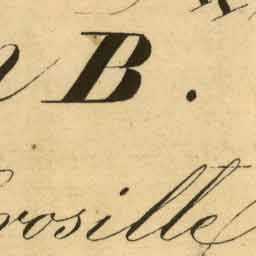 B.
rosille